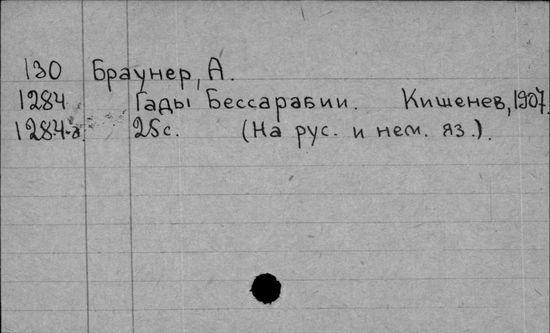 130 Браунер, А.
1284 Гады Бессарабии. Кишенев, 1907.
1284-а. 25с. (На рус. и нем. яз.).